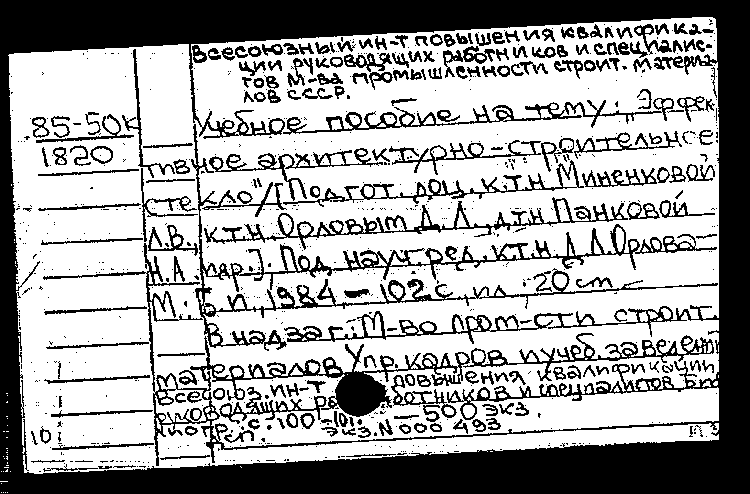 Всесоюзный ин-т повышения квалифика-
ции руководящих работников и специалис-
тов М-ва промышленности строит. материа-
лов СССР.
85-50к Учебное пособие на тему: „Эффек
1820 тивное архитектурно-строительное
стекло"/[Подгот. доц. к.т.н. Миненковой
Л.В., к.т.н. Орловым Д.Л., д.т.н. Панковой
Н.А. и др.]. Под науч. ред. к.т.н. Д.Л. Орлова –
М.: Б.и., 1984 – 102 с., ил.; 20 см. –
В надзаг.: М-во пром-сти строит.
материалов Упр. кадров и учеб. заведений
Всесоюз. ин-т повышения квалификации
руководящих работников и специалистов. Биб
лиогр.: с. 100-101. – 500 экз.
10 экз. N 000 493.